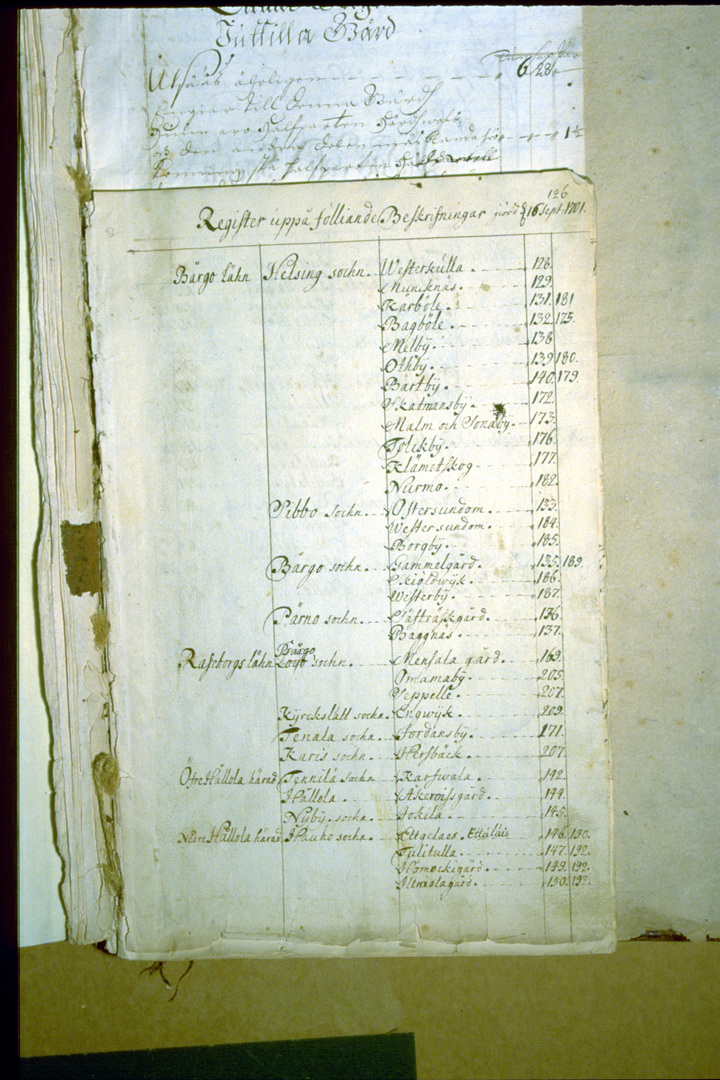 Juttilla Gård
Utsäås åhrligen - - - - 6/28
hörier till denna Gård
1½
126
Register uppå fölliande Beskrifningar giord d 16 Sept: 1701.
Bårgo Lähn Helsing sochn. Westerkulla. 128.
Muncknäs. 129.
Karböle. 131. 181
Bagböle. 132. 125.
Melby. 138
Othby. 139. 180.
Bärtby. 140. 179.
Skatmansby. 172.
Malm och Tomby. 173.
Tolckby. 176.
Klämetskog. 177.
Nurmo. 182.
Sibbo sochn. Östersundom. 133.
Westersundom. 184.
Borgby. 185.
Bårgo sochn. Gammelgård. 135. 189.
Skiöldwyk. 186.
Westerby. 187.
Pärno sochn. Säfträskgård. 136.
Baggnäs. 137.
Bårgo
Raseborgs lähn Loyo sochn. Mensala gård. 169.
Ormamaby. 205.
Seppelle. 207.
Kyrckslätt sochn. Engwyk. 209.
Tenala sochn. Jordansby. 171.
Karis sochn. Hersbäck. 207.
Öfre Hållola härad Tennilä sochn Karfwala. 142.
Hållola. Åkeroissgård. 144.
Nyby sochn. Jokila. 145.
Nedre Hållola härad Hauho sochn. Ettelaos. Ettälais 146. 190.
Tulitulla. 147. 192.
Homockigård. 149. 192.
150. 192.